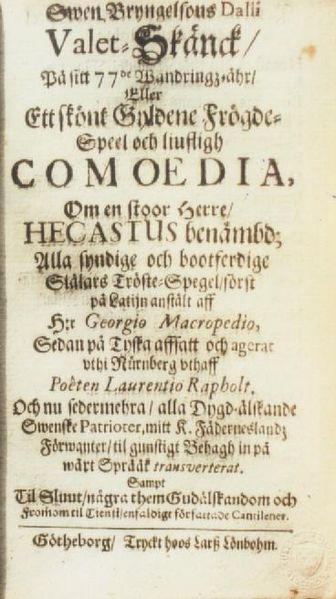 Swen Bryngelsons Dalii
Valet-Skänck/
På sitt 77de Wandringz-åhr/
Eller
Ett skönt Gyldene Frögde-
Speel och liufligh
COMOEDIA,
Om en stoor Herre/
HECASTUS benämbd;
Alla syndige och bootferdige
Siälars Tröste-Spegel/först
på Latijn anstält aff
H:r Georgio Macropedio,
Sedan på Tyska affsatt och agerat
uthi Nürnberg uthaff
Poëten Laurentio Rapholt.
Och nu sedermehra/alla Dygd-älskande
Swenske Patrioter, mitt K. Fäderneslandz
Förwanter/til gunstigt Behagh in på
wårt Språåk transverterat.
Sampt
Til Sluut/några them Gudälskandom och
Fromom til Tienst/enfaldigt författade Cantilener.
Götheborg/ Tryckt hoos Larß Lönbohm.